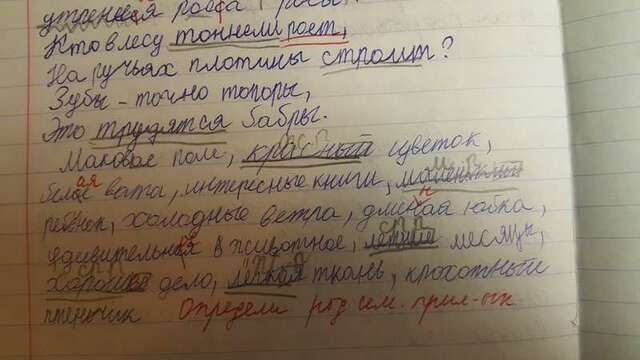 утренняя роса, росы,
Кто в лесу тоннели роет,
На ручьях плотины строит?
Зубы - точно топоры,
Это трудятся бабры.
Маковое поле, красный цветок,
белая вата, интересные книги, маленький
ребёнок, холодные ветра, длиная юбка,
удивительное животное, летние месяцы,
хорошее дело, лёгкая ткань, крохотный
птенчик Определи род сем. прил-ых